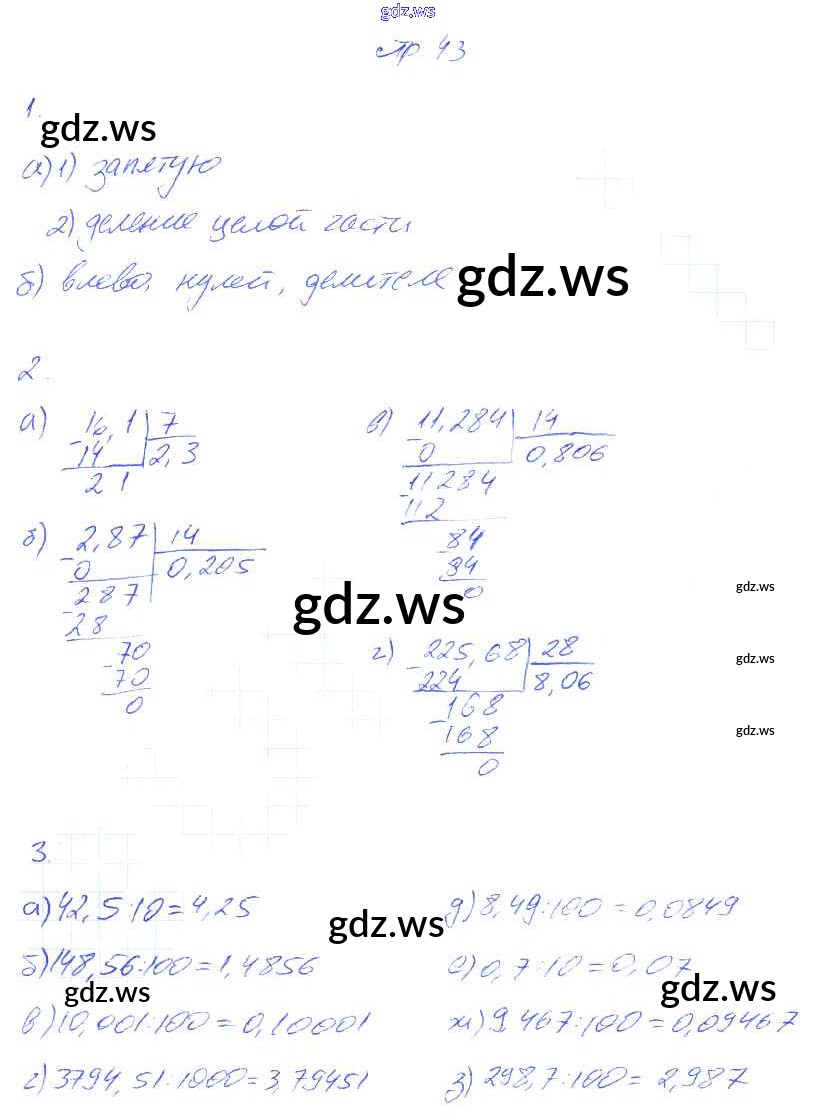 gdz.ws
стр 43
1.
gdz.ws
а) 1) запятую
2) деление целой части
б) влево, нулей, делителе
gdz.ws
2.
а) 16,1 | 7
- 14 | 2,3
21
б) 2,87 | 14
- 0 | 0,205
287
- 28
70
- 70
0
в) 11,284 | 14
- 0 | 0,806
11284
- 112
84
- 84
0
gdz.ws
gdz.ws
г) 225,68 | 28
- 224 | 8,06
168
- 168
0
gdz.ws
gdz.ws
3.
а) 42,5:10=4,25
б) 148,56:100=1,4856
gdz.ws
в) 10,001:100=0,10001
г) 3794,51:1000=3,79451
gdz.ws
д) 8,49:100=0,0849
е) 0,7:10=0,07
gdz.ws
ж) 9,467:100=0,09467
з) 298,7:100=2,987